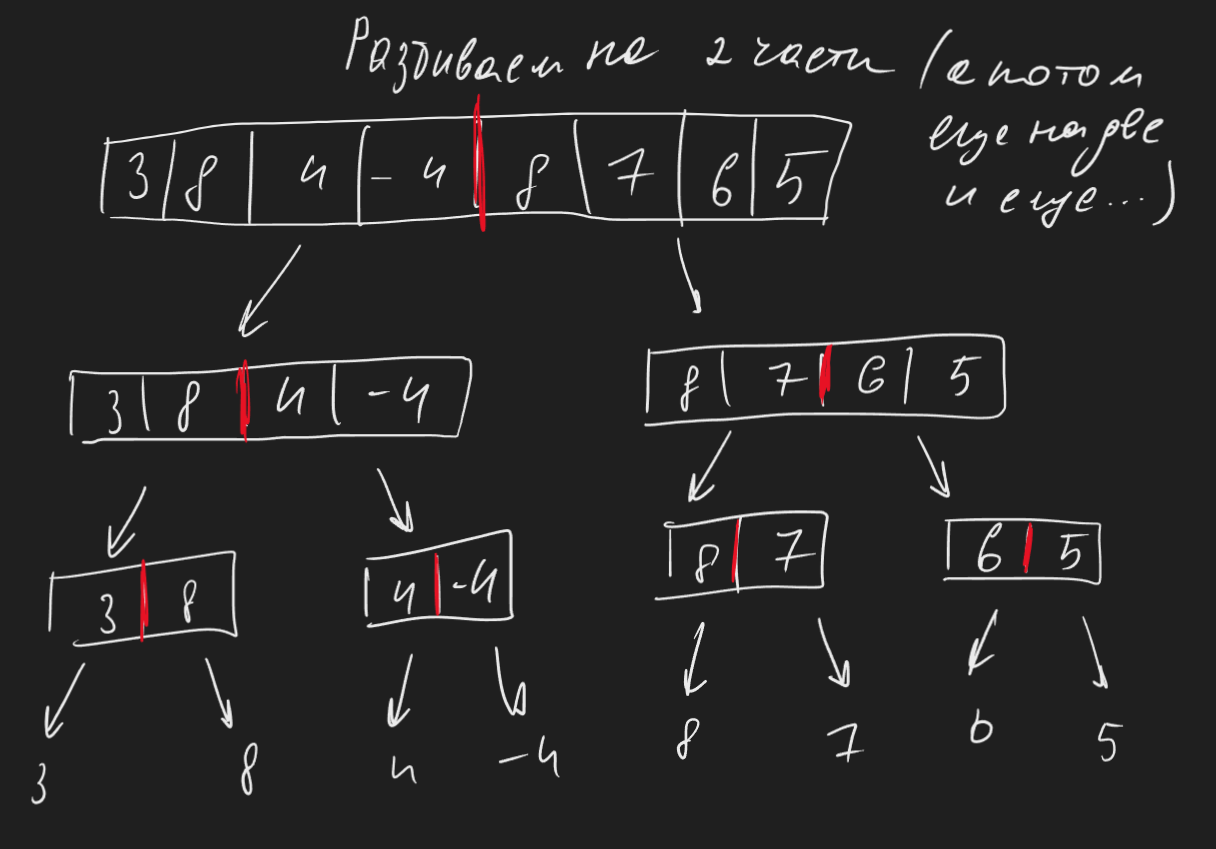 Разбиваем на 2 части (а потом
еще на две
и еще...)
3 8 4 -4 8 7 6 5
3 8 4 -4
8 7 6 5
3 8
4 -4
8 7
6 5
3 8 4 -4 8 7 6 5